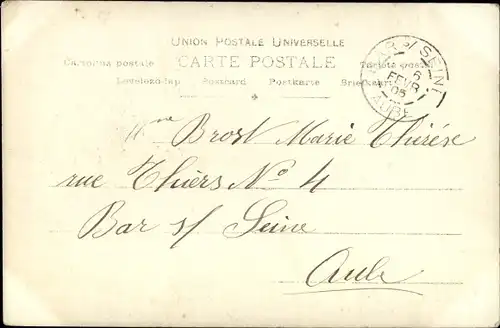 UNION POSTALE UNIVERSELLE
CARTE POSTALE
Cartolina postale
Levelezo-lap Postcard Postkarte
BAR s/ SEINE
6
FEVR
05
AUBE
Mme Brost Marie Thirése
rue Thiers No 4
Bar s/ Seine
Aube